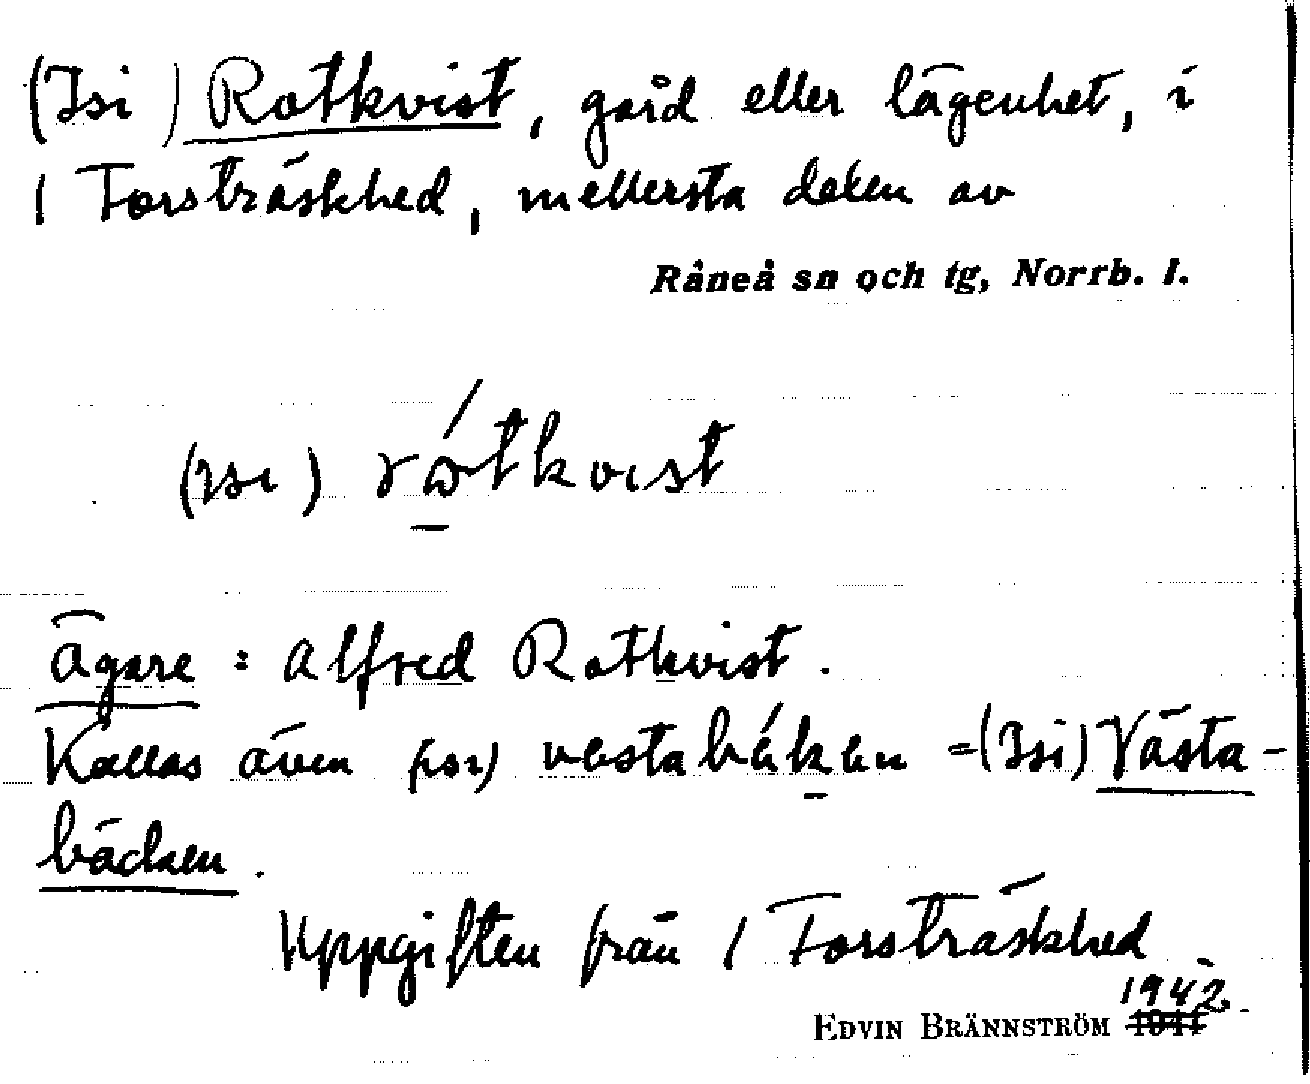 (Isi) Rotkvist, gård eller lägenhet, i
1 Forsträskhed, mellersta delen av
Råneå sn och tg, Norrb. l.
(ısı) rótkvıst
Ägare : Alfred Rotkvist.
Kallas även (ısı) vestabékan =(Isi) Västa-
bäcken.
Uppgiften från 1 Forsträskhed
1942
EDVIN BRÄNNSTRÖM 1941